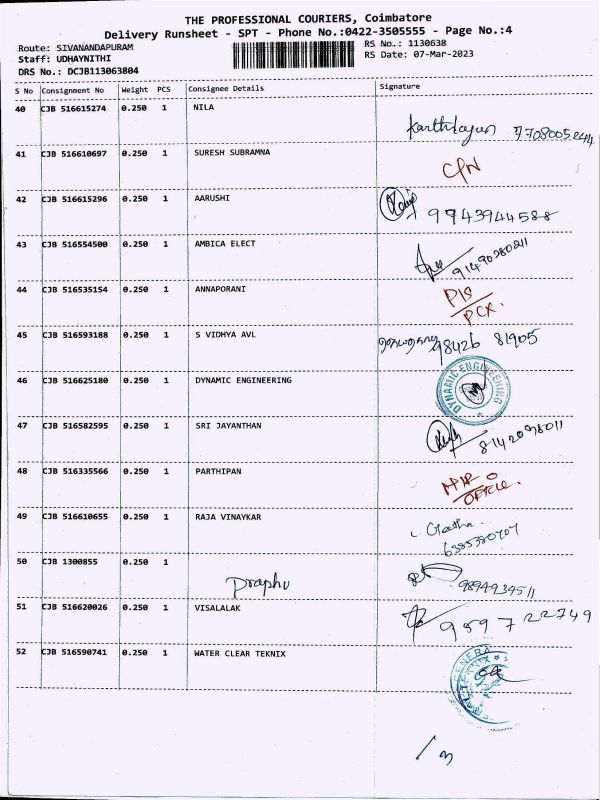 THE PROFESSIONAL COURIERS, Coimbatore
Delivery Runsheet - SPT - Phone No.:0422-3505555 - Page No.:4
Route: SIVANANDAPURAM
RS No.: 1130638
Staff: UDHAYNITHI
RS Date: 07-Mar-2023
DRS No.: DCJB113063804
S No Consignment No Weight PCS Consignee Details Signature
40 CJB 516615274 0.250 1 NILA
7708005244
41 CJB 516610697 0.250 1 SURESH SUBRAMNA
42 CJB 516615296 0.250 1 AARUSHI
9943944588
43 CJB 516554500 0.250 1 AMBICA ELECT
44 CJB 516535154 0.250 1 ANNAPORANI
45 CJB 516593188 0.250 1 S VIDHYA AVL
98426 81905
46 CJB 516625180 0.250 1 DYNAMIC ENGINEERING
DYNAMIC ENGINEERING
47 CJB 516582595 0.250 1 SRI JAYANTHAN
8142098011
48 CJB 516335566 0.250 1 PARTHIPAN
OFFICE.
49 CJB 516610655 0.250 1 RAJA VINAYKAR
50 CJB 1300855 0.250 1
Praphu
9894934511
51 CJB 516620026 0.250 1 VISALALAK
9897722749
52 CJB 516590741 0.250 1 WATER CLEAR TEKNIX